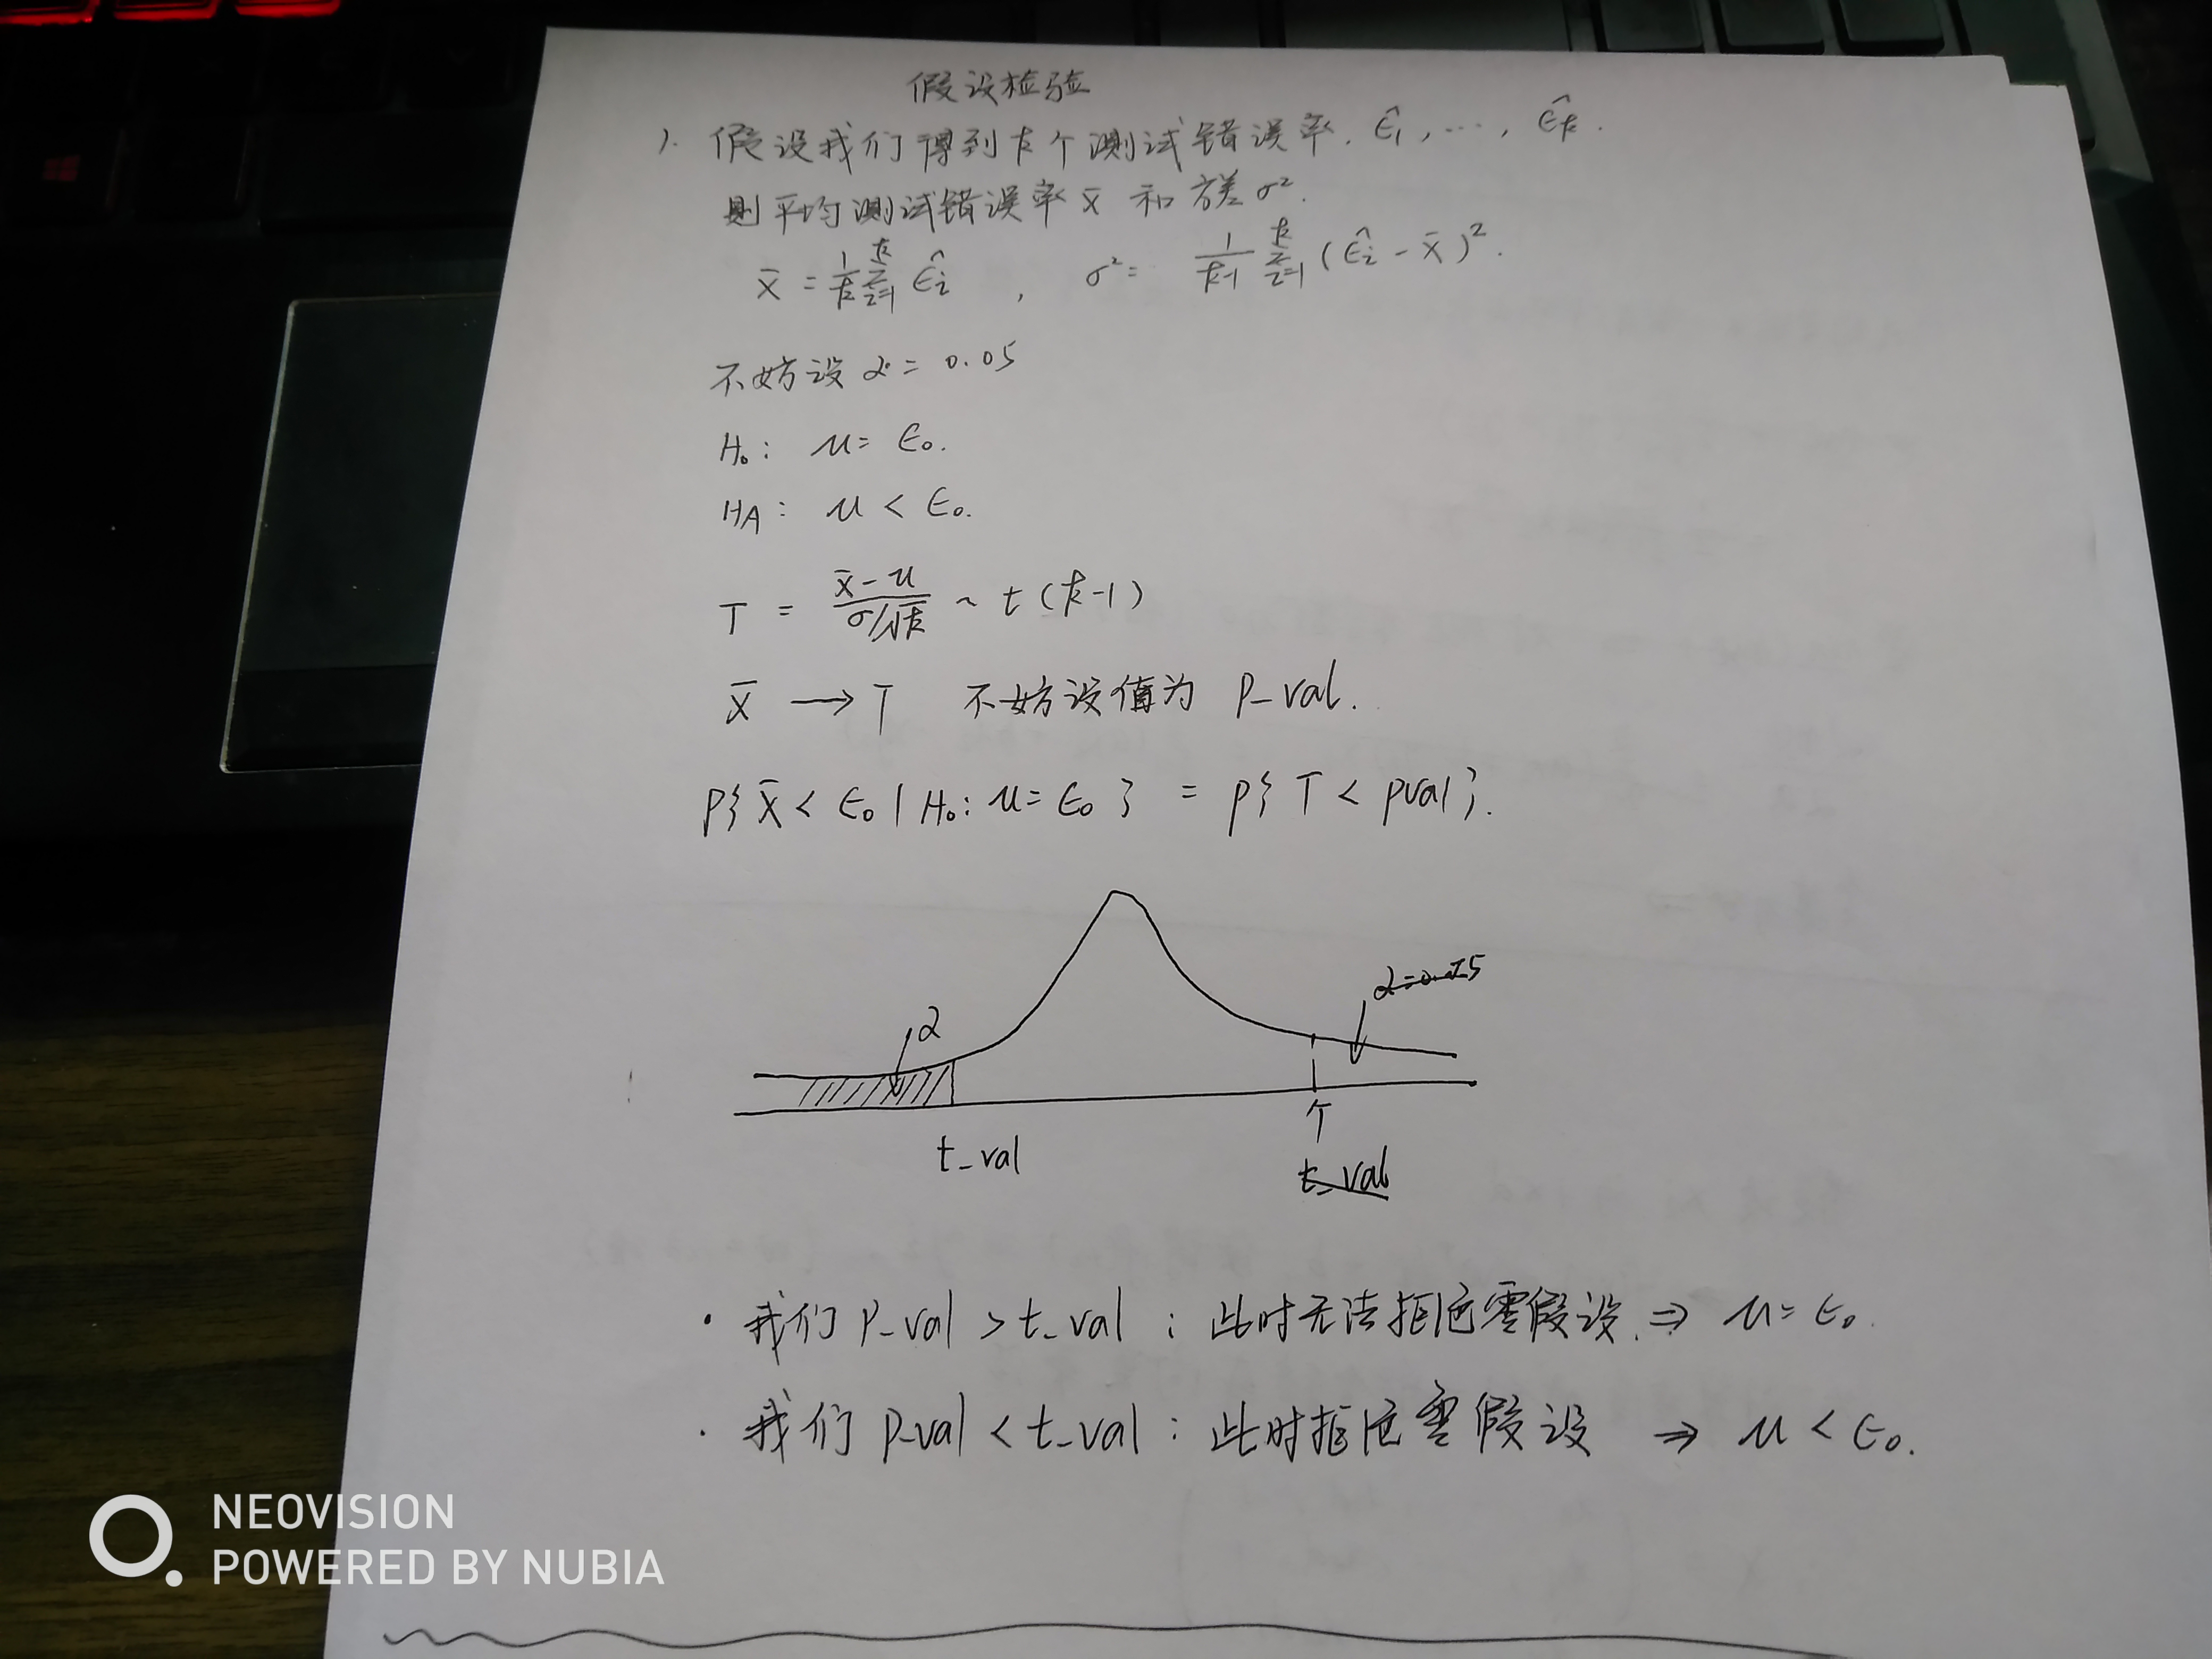 假设检验
1. 假设我们得到k个测试错误率. ε̂₁, …, ε̂k.
则平均测试错误率 x̄ 和方差 σ².
x̄ = 1/k Σᵢ₌₁ᵏ ε̂ᵢ , σ² = 1/(k-1) Σᵢ₌₁ᵏ (ε̂ᵢ - x̄)².
不妨设 α = 0.05
H₀: μ = ε₀.
HA: μ < ε₀.
T = (x̄ - μ)/(σ/√k) ~ t(k-1)
x̄ → T 不妨设值为 p_val.
P{x̄ < ε₀ | H₀: μ = ε₀} = P{T < pval}.
α=0.025
α
T
t_val
t_val
· 我们 p_val > t_val : 此时无法拒绝零假设. ⇒ μ = ε₀.
· 我们 p_val < t_val : 此时拒绝零假设 ⇒ μ < ε₀.
NEOVISION
POWERED BY NUBIA